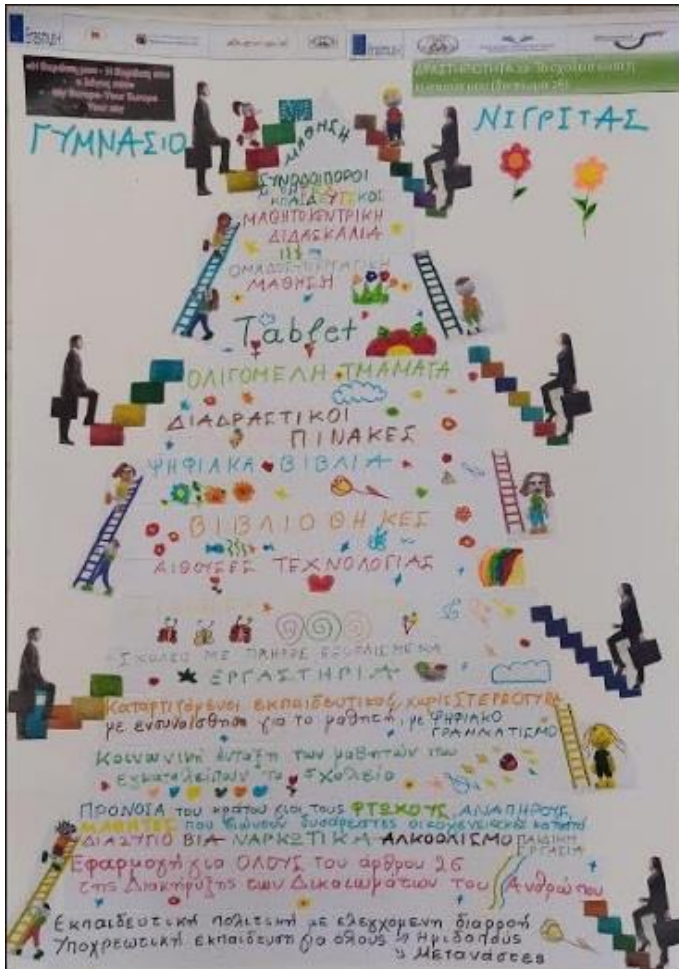 Erasmus+
Erasmus+
«Η Ευρώπη μου - Η Ευρώπη σου
ΔΡΑΣΤΗΡΙΟΤΗΤΑ
ΓΥΜΝΑΣΙΟ
ΝΙΓΡΙΤΑΣ
ΜΑΘΗΣΗ
ΣΥΝΟΔΟΙΠΟΡΟΙ
ΜΑΘΗΤΟΚΕΝΤΡΙΚΗ
ΔΙΔΑΣΚΑΛΙΑ
ΟΜΑΔΟΣΥΝΕΡΓΑΤΙΚΗ
ΜΑΘΗΣΗ
Tablet
ΟΛΙΓΟΜΕΛΗ ΤΜΑΜΑΤΑ
ΔΙΑΔΡΑΣΤΙΚΟΙ
ΠΙΝΑΚΕΣ
ΨΗΦΙΑΚΑ ΒΙΒΛΙΑ
ΒΙΒΛΙΟΘΗΚΕΣ
ΑΙΘΟΥΣΕΣ ΤΕΧΝΟΛΟΓΙΑΣ
ΣΧΟΛΕΙΟ ΜΕ ΠΛΗΡΩΣ ΕΞΟΠΛΙΣΜΕΝΑ
ΕΡΓΑΣΤΗΡΙΑ
Καταρτιζόμενοι εκπαιδευτικοί χωρίς ΣΤΕΡΕΟΤΥΠΑ
με ενσυναίσθηση για το μαθητή, με ΨΗΦΙΑΚΟ
ΓΡΑΜΜΑΤΙΣΜΟ
Κοινωνική ένταξη των μαθητών που
εγκαταλείπουν το σχολείο
ΠΡΟΝΟΙΑ του κράτου για τους ΦΤΩΧΟΥΣ, ΑΝΑΠΗΡΟΥΣ,
ΜΑΘΗΤΕΣ που βιώνουν δυσάρεστες οικογενειακές
ΔΙΑΖΥΓΙΟ ΒΙΑ ΝΑΡΚΩΤΙΚΑ ΑΛΚΟΟΛΙΣΜΟ ΠΑΙΔΙΚΗ
ΕΡΓΑΣΙΑ
Εφαρμογή για ΟΛΟΥΣ του άρθρου 26
της Διακήρυξης των Δικαιωμάτων του Ανθρώπου
Εκπαιδευτική πολιτική με ελεγχόμενη διαρροή
Υποχρεωτική εκπαίδευση για όλους → Ημεδαπούς
→ Μετανάστες